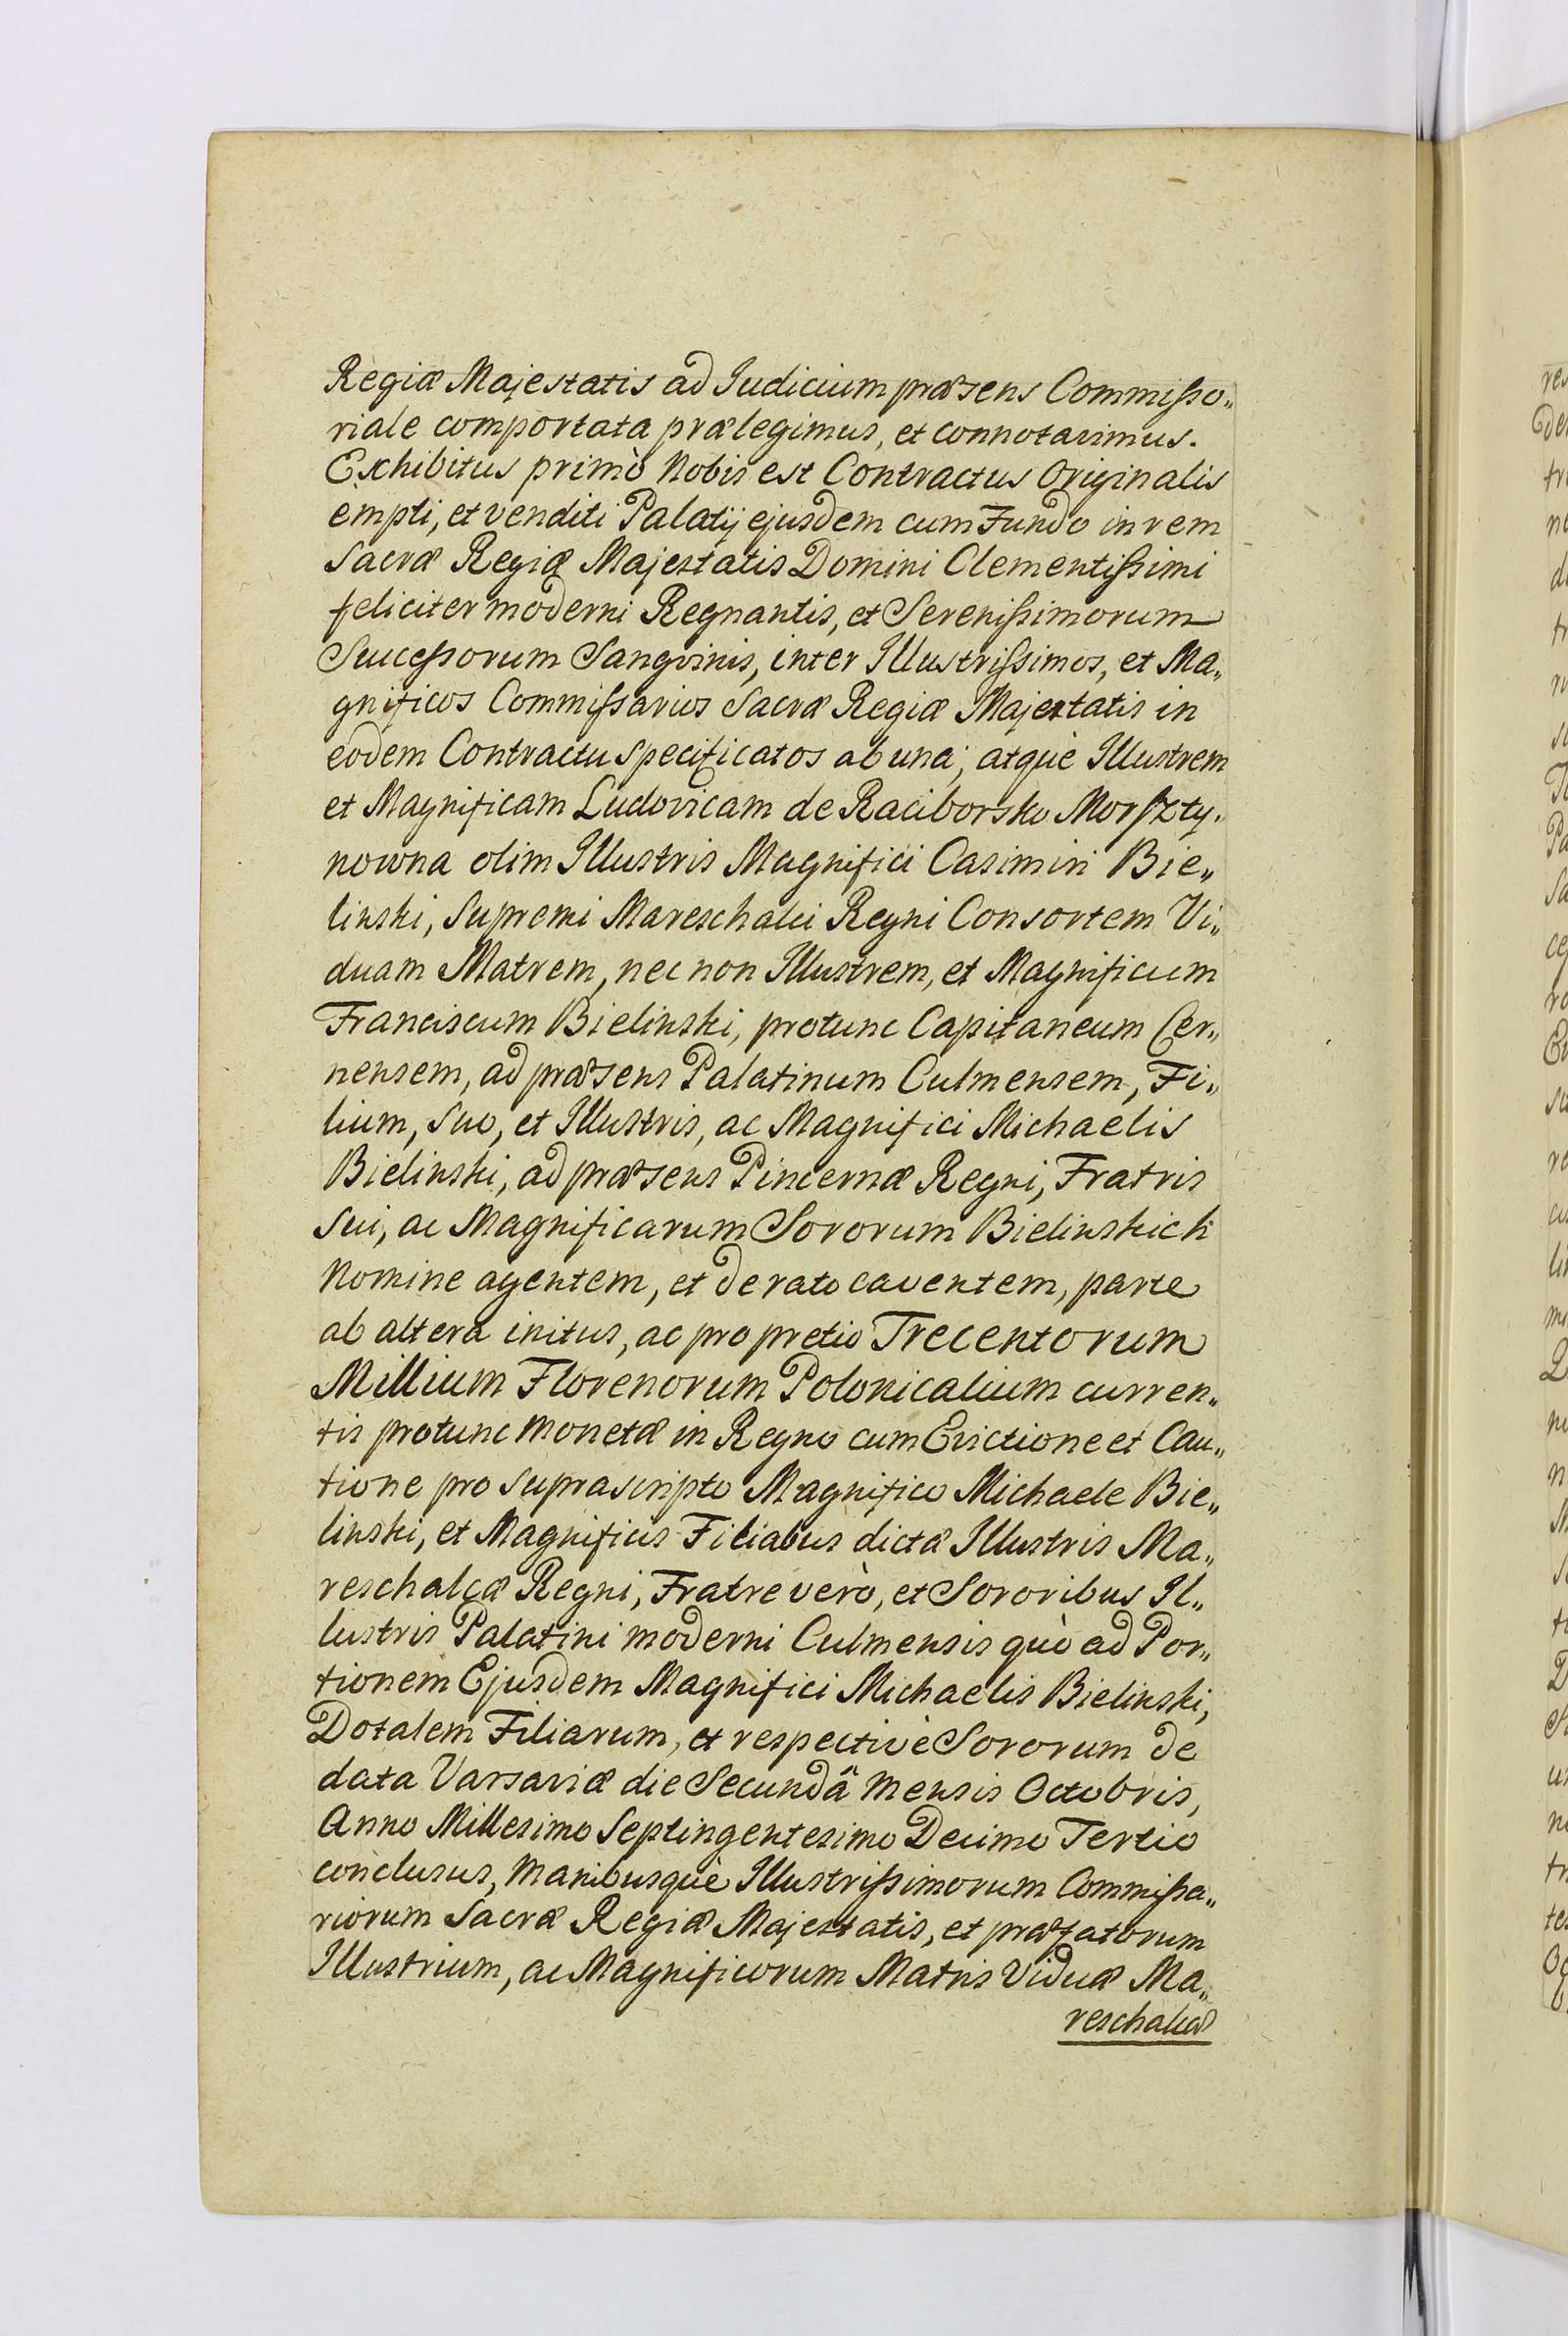 Regiæ Majestatis ad Iudicium præsens Commisso„
riale comportata prælegimus, et connotavimus.
Exhibitus primò Nobis est Contractus Originalis
empti, et venditi Palatij ejusdem cum Fundo in rem
Sacræ Regiæ Majestatis Domini Clementissimi
feliciter moderni Regnantis, et Serenissimorum
Successorum Sangvinis, inter Illustrissimos, et Ma„
gnificos Commissarios Sacræ Regiæ Majestatis in
eodem Contractu specificatos ab una, atquè Illustrem
et Magnificam Ludovicam de Raciborsko Morszty„
nowna olim Illustris Magnifici Casimiri Bie„
linski, Supremi Mareschalci Regni Consortem Vi„
duam Matrem, nec non Illustrem, et Magnificum
Franciscum Bielinski, protunc Capitaneum Cer„
nensem, ad præsens Palatinum Culmensem, Fi„
lium, suo, et Illustris, ac Magnifici Michaelis
Bielinski, ad præsens Pincernæ Regni, Fratris
sui, ac Magnificarum Sororum Bielinskich
Nomine agentem, et de rato caventem, parte
ab altera initus, ac pro pretio Trecentorum
Millium Florenorum Polonicalium curren„
tis protunc Monetæ in Regno cum Evictione et Cau„
tione pro suprascripto Magnifico Michaele Bie„
linski, et Magnificis Filiabus dictæ Illustris Ma„
reschalcæ Regni, Fratre verò, et Sororibus Il„
lustris Palatini moderni Culmensis quò ad Por„
tionem Ejusdem Magnifici Michaelis Bielinski,
Dotalem Filiarum, et respectivè Sororum de
data Varsaviæ die Secundâ Mensis Octobris,
Anno Millesimo Septingentesimo Decimo Tertio
conclusus, Manibusquè Illustrissimorum Commissa„
riorum Sacræ Regiæ Majestatis, et præfatorum
Illustrium, ac Magnificorum Matris Viduæ Ma„
reschalcæ